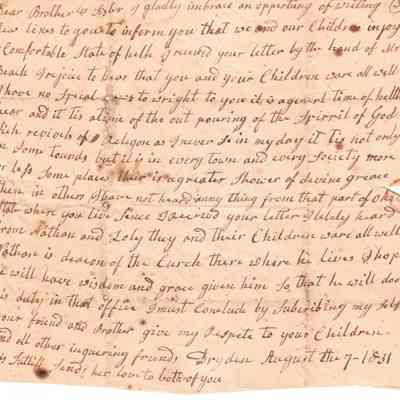 Dear Brother & Sister I gladly embrace an opportuny of writing
few lines to you to inform you that we and our Children injoy
Comfortable State of helth I receved your letter by the hand of Mr
Beach I rejoice to hear that you and your Children ware all well
I have no Spesial news to wright to you it is a general time of helth
near and it tis a time of the out pouring of the Spirrit of God
Sich revivels of Religeon as I never So in my day it Tis not only
in Some tounds but it is in every town and every Society more
or less Some places thair is a greater Shower of devine greace
then in others I have not heard anny thing from that part of Ohio
that where you live Sence I receved your letter I lately heard
from Nathon and Loly they and their Children ware all well
Nathon is deacon of the Curch there where he lives I hope
he will have wisdom and grace given him So that he will doo
his duty in that office I must Conclude by Subscribing my self
your friend and Brother give my Respets to your Children
and all other inquering friends Dryden August the 7-1831
Sends her love to both of you